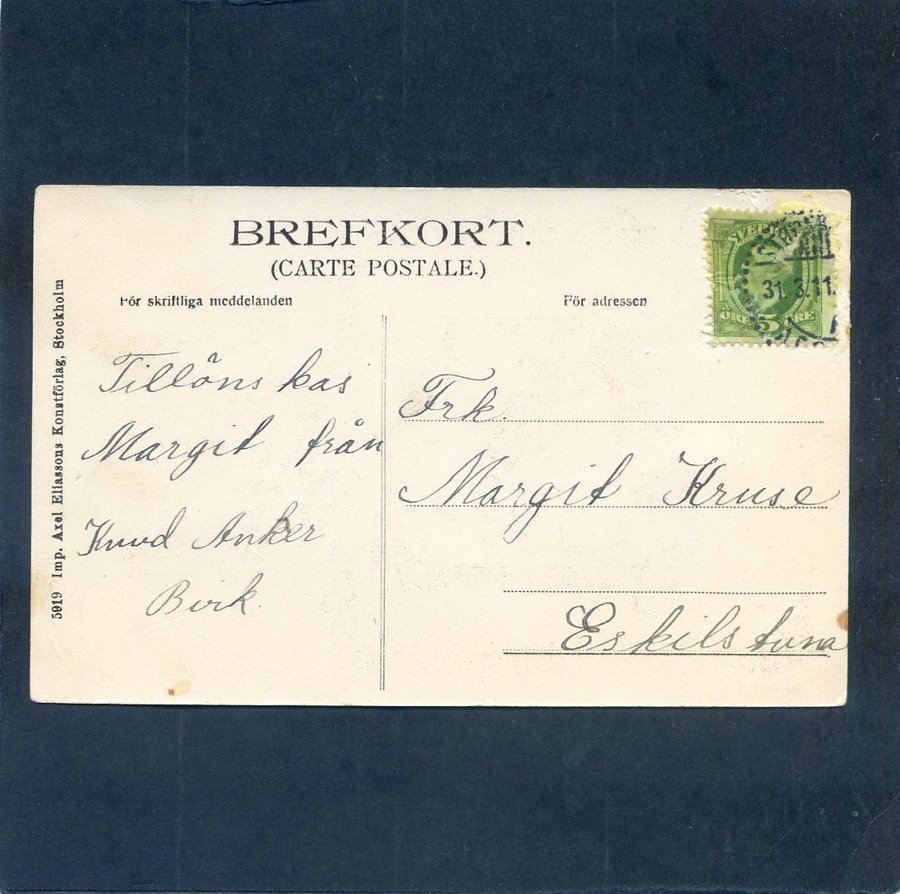 BREFKORT.
(CARTE POSTALE.)
För skriftliga meddelanden
För adressen
Tillönskas
Margit från
Knud Anker
Birk.
Frk.
Margit Kruse
Eskilstuna
5019 Imp. Axel Eliassons Konstförlag, Stockholm
31.3.11.
ÖRE 5 ÖRE